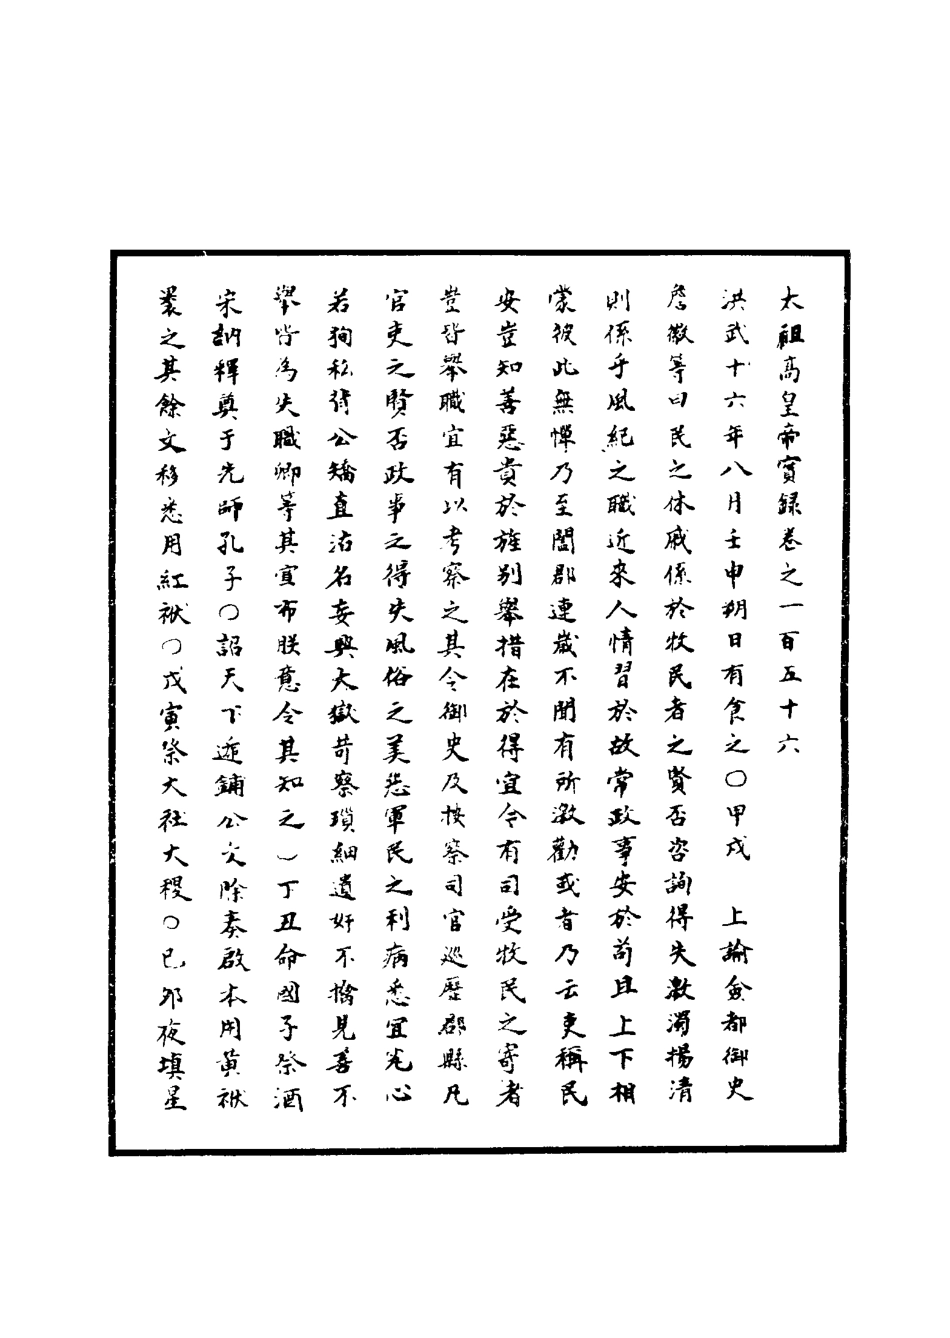 太祖高皇帝實録卷之一百五十六
洪武十六年八月壬申朔日有食之〇甲戌　上諭僉都御史
詹徽等曰民之休戚係於牧民者之賢否咨詢得失激濁揚清
則係乎風紀之職近來人情習於故常政事安於苟且上下相
蒙彼此無憚乃至閤郡連歲不聞有所激勸或者乃云吏稱民
安豈知善惡貴於旌别舉措在於得宜今有司受牧民之寄者
豈皆舉職宜有以考察之其令御史及按察司官巡歷郡縣凡
官吏之賢否政事之得失風俗之美惡軍民之利病悉宜究心
若狥私背公矯直沽名妄興大獄苛察瑣細遺奸不擒見善不
舉皆為失職卿等其宣布朕意令其知之〇丁丑命國子祭酒
宋訥釋奠于先師孔子〇詔天下遞鋪公文除奏啟本用黄袱
裹之其餘文移悉用紅袱〇戊寅祭大社大稷〇己夘夜填星